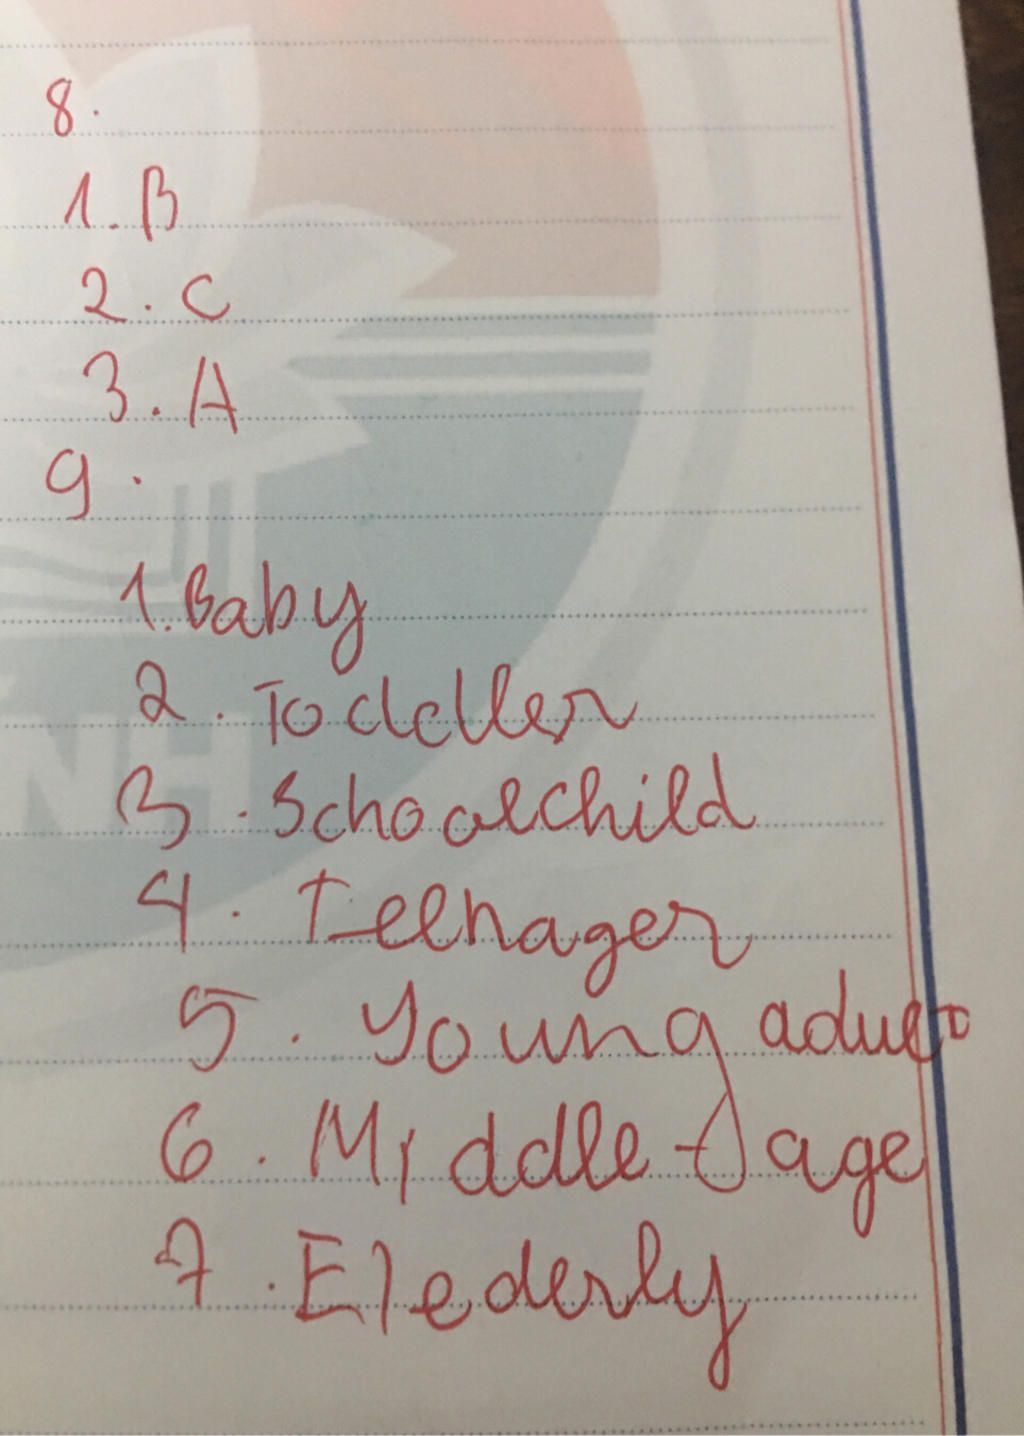 8.
1. B
2. C
3. A
9.
1. Baby
2. Toddller
3. Schoolchild
4. Teenager
5. Young adult
6. Middle - age
7. Elederly
NH